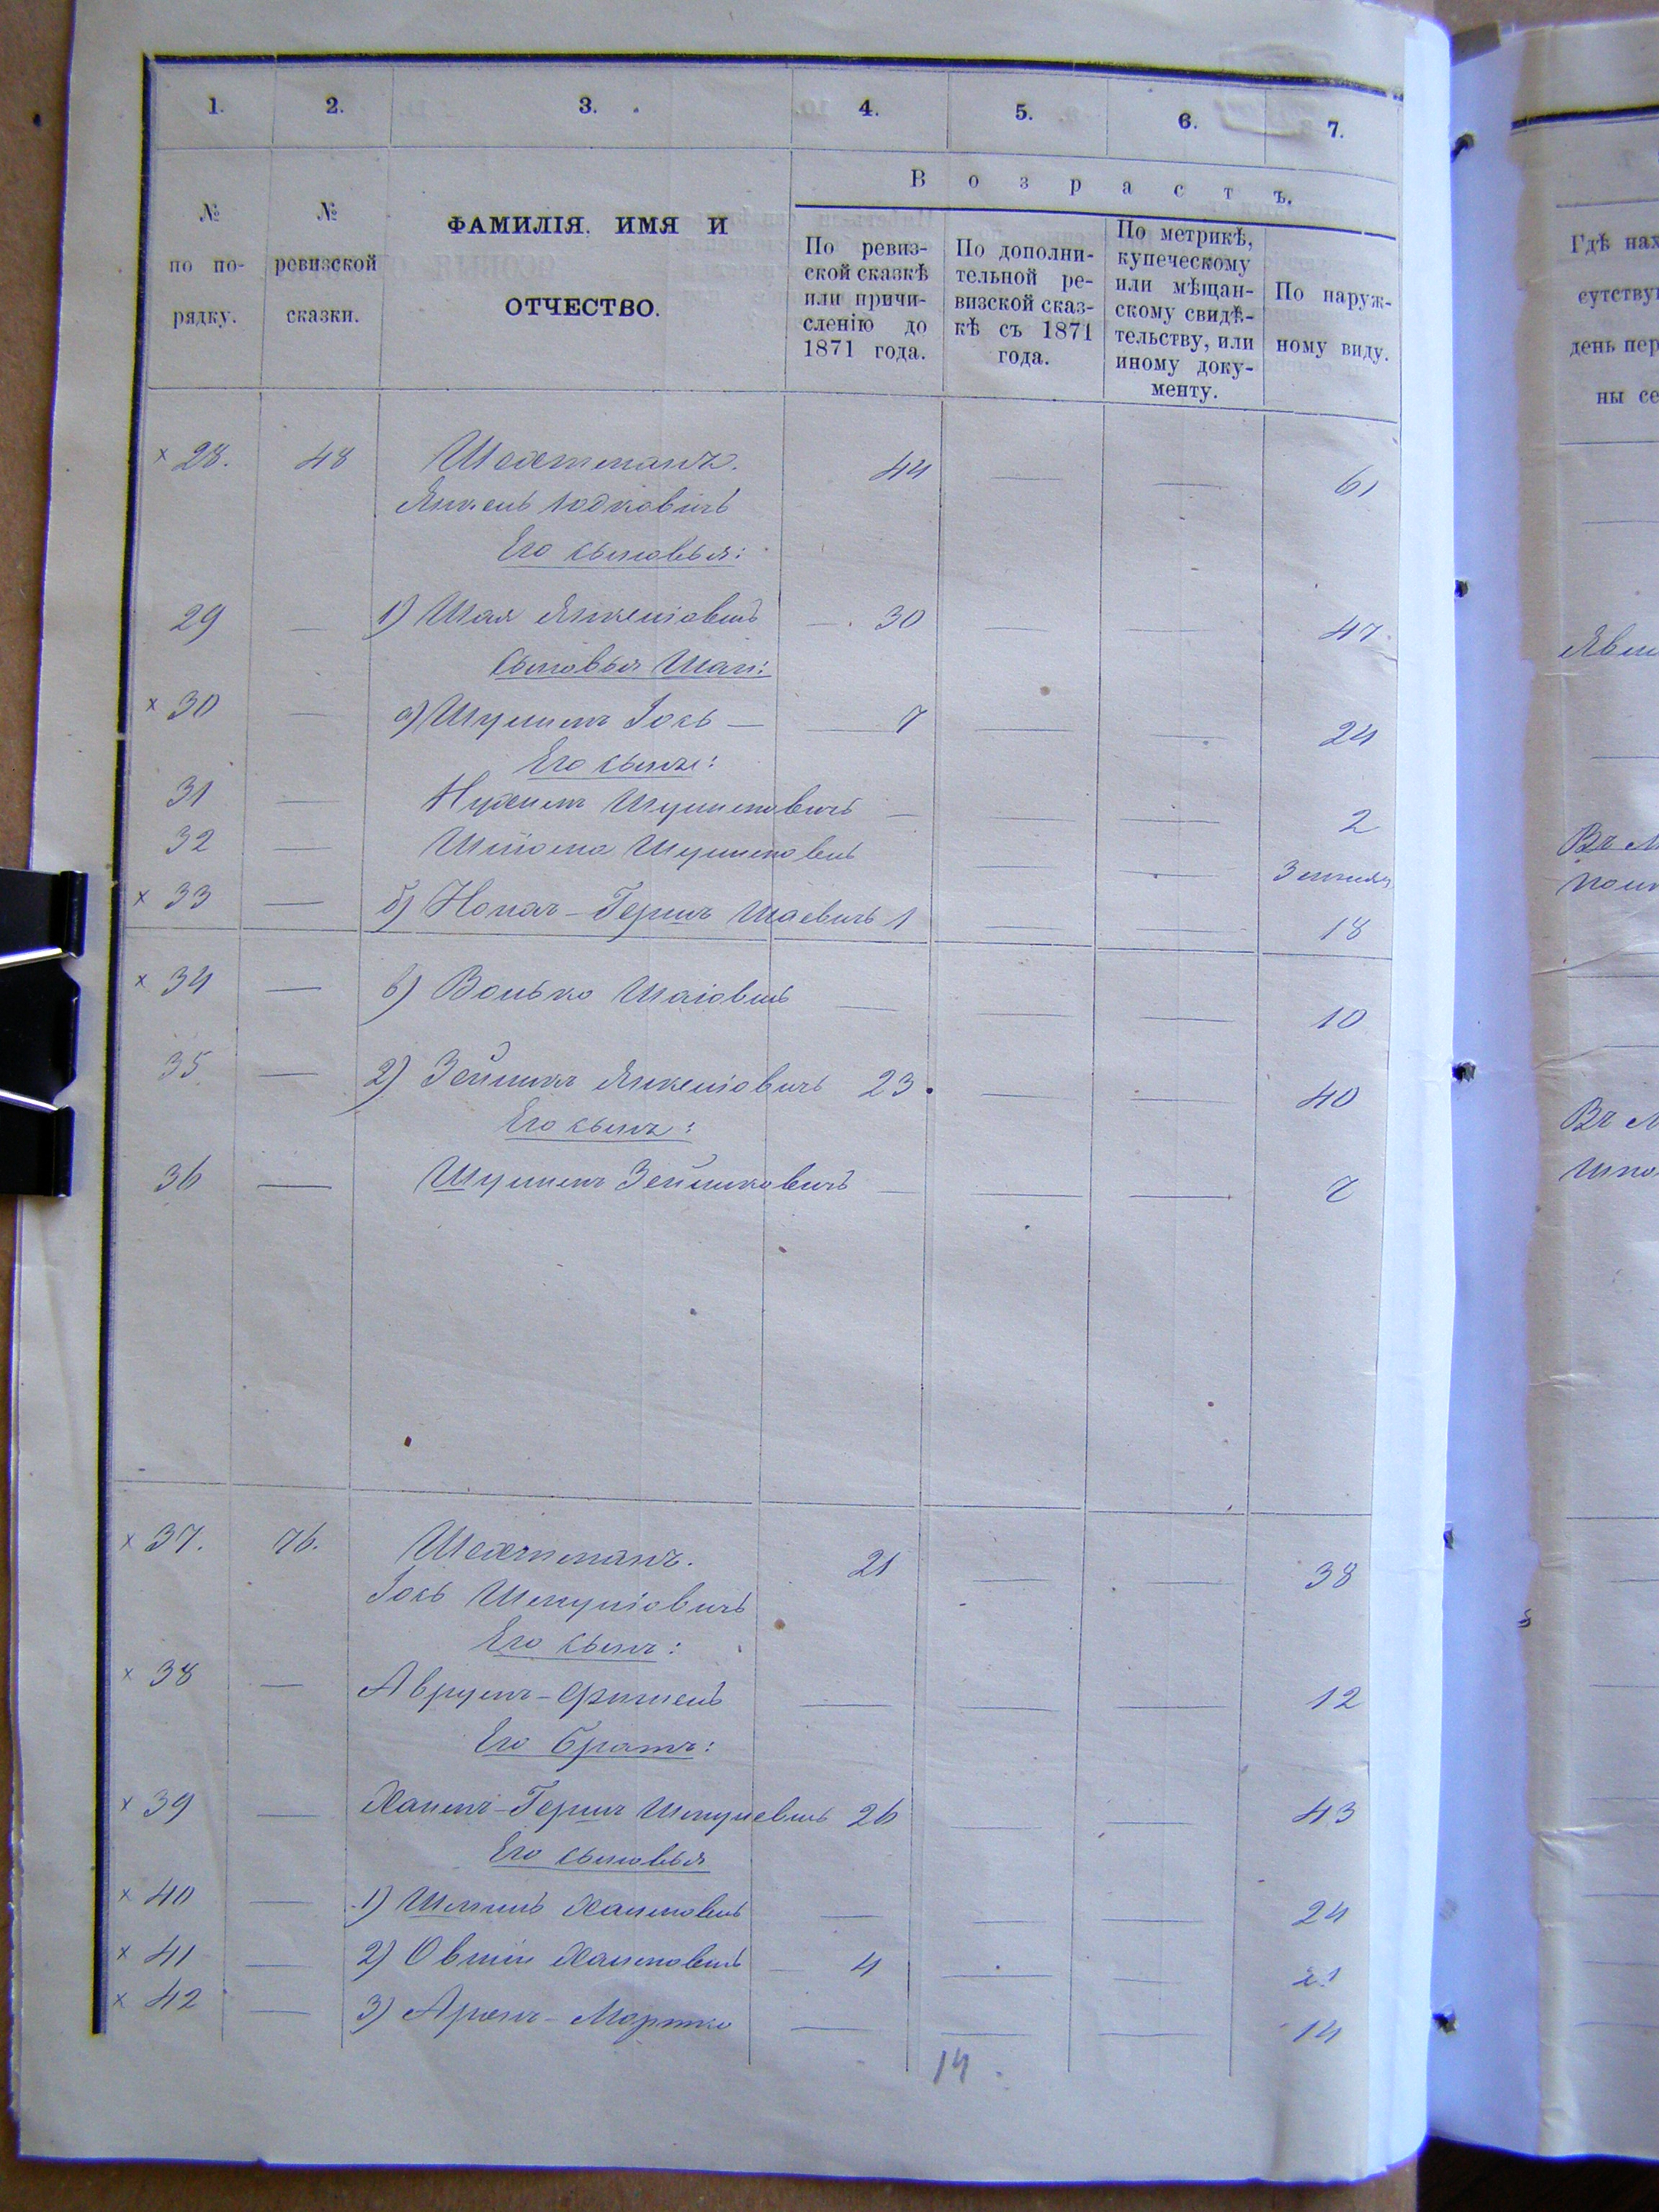 1. 2. 3. 4. 5. 6. 7.
В о з р а с т ъ.
№ по по- рядку.
№ ревизской сказки.
ФАМИЛІЯ. ИМЯ И
ОТЧЕСТВО.
По ревиз-
ской сказкѣ
или причи-
сленію до
1871 года.
По дополни-
тельной ре-
визской сказ-
кѣ съ 1871
года.
По метрикѣ,
купеческому
или мѣщан-
скому свидѣ-
тельству, или
иному доку-
менту.
По наруж-
ному виду.
х 28. 48 Шехтманъ. 44 — — 61
Янкель Юдковичъ
Его сыновья:
29 — 1) Шая Янкеліовичъ — 30 — — 47
Сыновья Шаи:
х 30 — а) Шулимъ Іось — 7 — — 24
Его сынъ:
31 — Нухимъ Шулимовичъ — — — 2
32 — Шлома Шулимовичъ — —
х 33 — б) Гершъ Шаевичъ 1 — — 18
х 34 — в) Волько Шаіовичъ — — — 10
35 — 2) Зейликъ Янкеліовичъ 23 — — 40
Его сынъ:
36 — Шулимъ Зейликовичъ — — — 7
х 37. 76. Шехтманъ. 21 — — 38
Іось Шмуліовичъ
Его сынъ:
х 38 — Аврумъ-Фишель — — — 12
Его братъ:
х 39 — Хаимъ-Гершъ Шмулевичъ 26 — — 43
Его сыновья
х 40 — 1) Хаимовичъ — — — 24
х 41 — 2) Овшій Хаимовичъ — 4 — — 21
х 42 — 3) Аронъ-Мортко — — — 14
14
Гдѣ нах
сутству
день пер
ны се
Въ М
Въ М